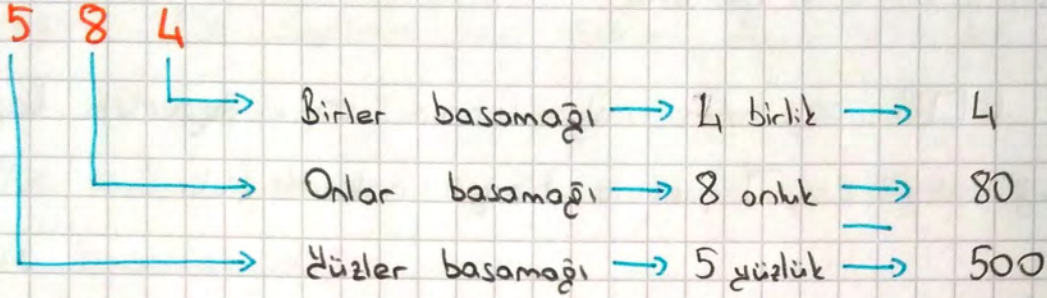 5 8 4
Birler basamağı → 4 birlik → 4
Onlar basamağı → 8 onluk → 80
Yüzler basamağı → 5 yüzlük → 500